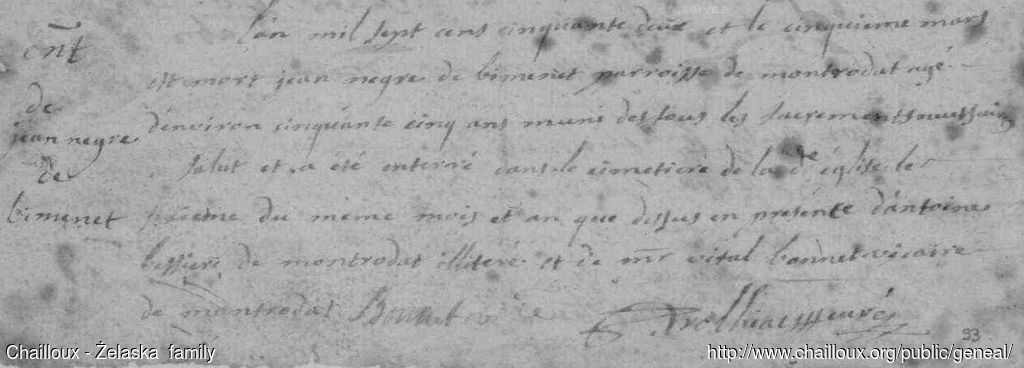 ent
de
jean negre
de
bimenet
L'an mil sept cens cinquante deux et le cinquieme mars
est mort jean negre de bimenet parroisse de montrodat agé
d'environ cinquante cinq ans muni des tous les sacrements
salut et a été enterré dans le cimetiere de la dte église le
sixieme du meme mois et an que dessus en presence d'antoine
de montrodat illiteré et de mr vital bonnet vicaire
de montrodat Bonnet vic
curé
93
Chailloux - Żelaska family
http://www.chailloux.org/public/geneal/